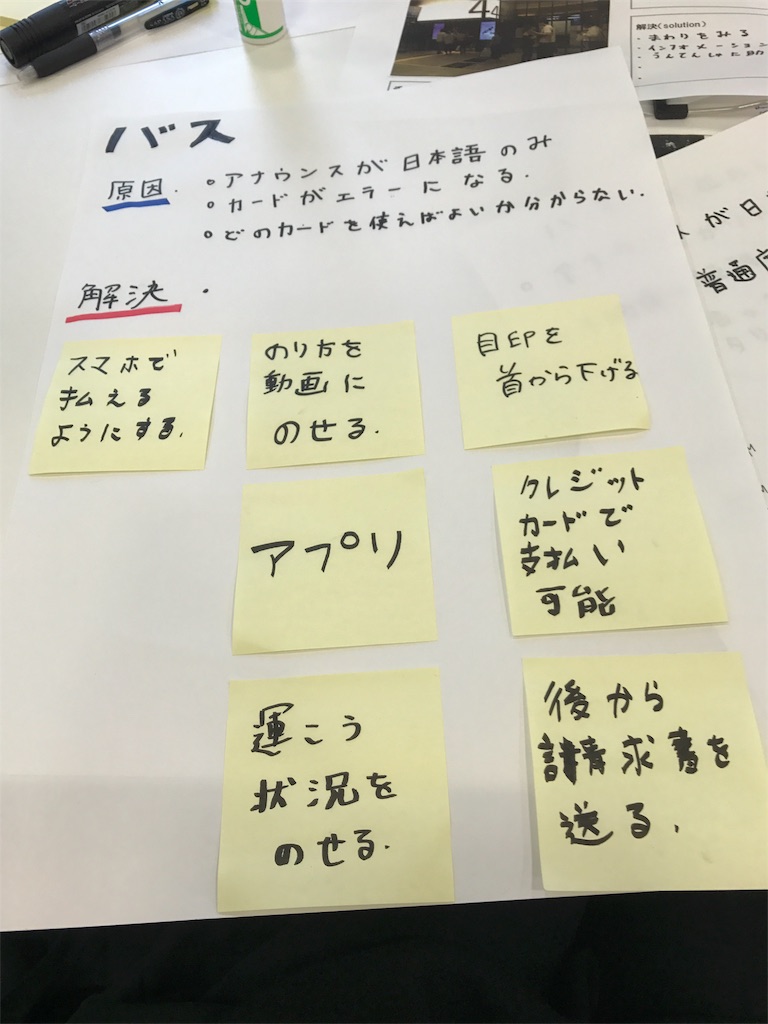 バス
原因.
・アナウンスが日本語のみ
・カードがエラーになる.
・どのカードを使えばよいか分からない.
解決 ・
スマホで
払える
ようにする.
のり方を
動画に
のせる.
目印を
首から下げる
アプリ
クレジット
カードで
支払い
可能
運こう
状況を
のせる.
後から
請求書を
送る.
44
解決(solution)
・まわりをみる
・インフォメーション
・うんてんしゅに助
が日
普通